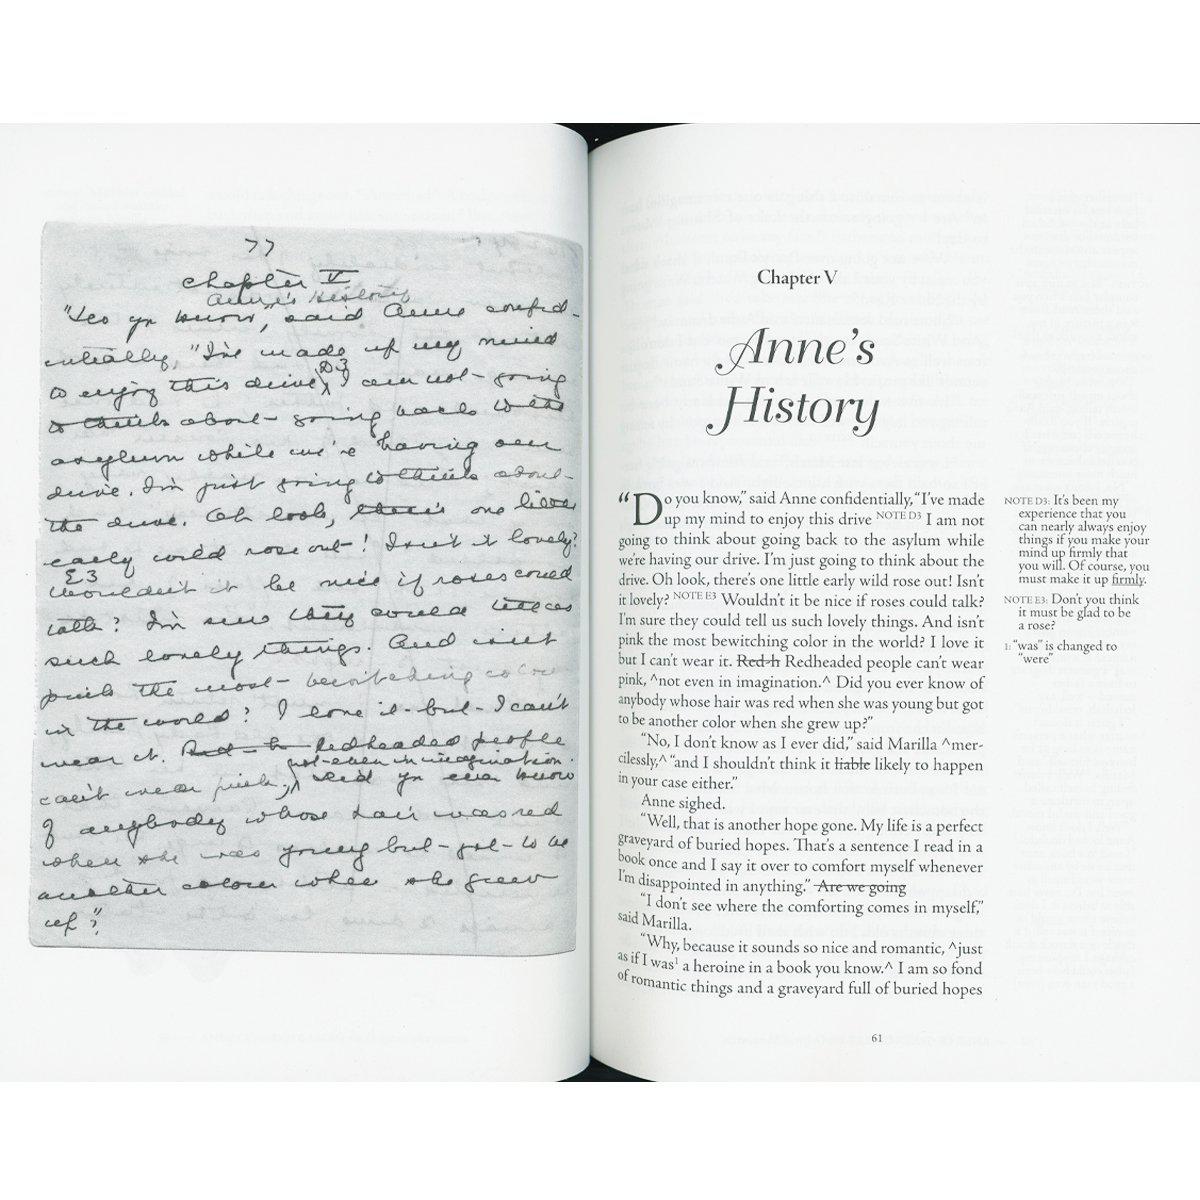 77
Chapter V
Anne's History
"Do you know," said Anne confid-
entially, "I've made up my mind
D3
to enjoy this drive I am not going
to think about going back to the
asylum while we're having our
drive. I'm just going to think about
the drive. Oh look, there's one little
early wild rose out! Isn't it lovely?
E3
Wouldn't it be nice if roses could
talk? I'm sure they could tell us
such lovely things. And isn't
pink the most bewitching colour
in the world? I love it but I can't
wear it. Red h Redheaded people
not even in imagination.
can't wear pink, Did you ever know
of anybody whose hair was red
when she was young but got to be
another colour when she grew
up?"
Chapter V
Anne's
History
"Do you know," said Anne confidentially, "I've made
up my mind to enjoy this drive NOTE D3 I am not
going to think about going back to the asylum while
we're having our drive. I'm just going to think about the
drive. Oh look, there's one little early wild rose out! Isn't
it lovely? NOTE E3 Wouldn't it be nice if roses could talk?
I'm sure they could tell us such lovely things. And isn't
pink the most bewitching color in the world? I love it
but I can't wear it. Red h Redheaded people can't wear
pink, ^not even in imagination.^ Did you ever know of
anybody whose hair was red when she was young but got
to be another color when she grew up?"
"No, I don't know as I ever did," said Marilla ^mer-
cilessly,^ "and I shouldn't think it liable likely to happen
in your case either."
Anne sighed.
"Well, that is another hope gone. My life is a perfect
graveyard of buried hopes. That's a sentence I read in a
book once and I say it over to comfort myself whenever
I'm disappointed in anything." Are we going
"I don't see where the comforting comes in myself,"
said Marilla.
"Why, because it sounds so nice and romantic, ^just
as if I was1 a heroine in a book you know.^ I am so fond
of romantic things and a graveyard full of buried hopes
NOTE D3: It's been my
experience that you
can nearly always enjoy
things if you make your
mind up firmly that
you will. Of course, you
must make it up firmly.
NOTE E3: Don't you think
it must be glad to be
a rose?
1: "was" is changed to
"were"
61